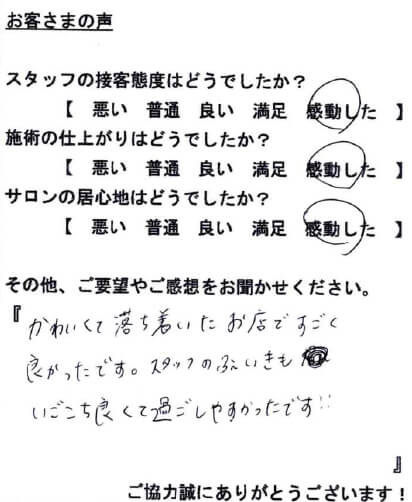 お客さまの声
スタッフの接客態度はどうでしたか？
【 悪い 普通 良い 満足 感動した 】
施術の仕上がりはどうでしたか？
【 悪い 普通 良い 満足 感動した 】
サロンの居心地はどうでしたか？
【 悪い 普通 良い 満足 感動した 】
その他、ご要望やご感想をお聞かせください。
『かわいくて落ち着いたお店ですごく
良かったです。スタッフのふんいきも
いごこち良くて過ごしやすかったです!!
』
ご協力誠にありがとうございます！